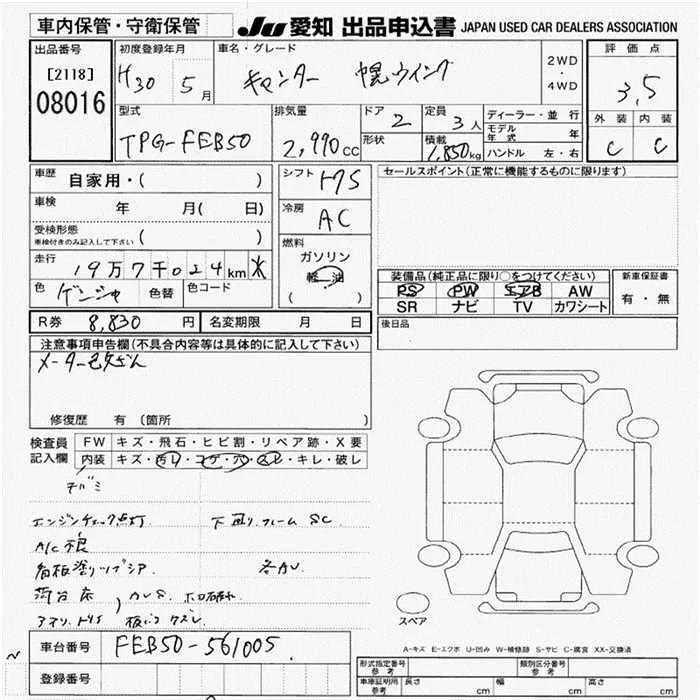 車内保管・守衛保管
JU 愛知 出品申込書 JAPAN USED CAR DEALERS ASSOCIATION
出品番号
[2118]
08016
初度登録年月
H30 5月
車名・グレード
キャンター 幌ウイング
2WD
・
4WD
評価点
3,5
外装 内装
C C
型式
TPG-FEB50
排気量
2,990cc
ドア
2
形状
定員
3人
積載
1,850kg
ディーラー・並行
モデル年式 年
ハンドル 左・右
車歴
自家用・( )
車検
年 月( 日)
受検形態
車検付きのみ記入して下さい ( )
走行
19万7千024km
色
色替
色コード
シフト
冷房
AC
燃料
ガソリン
軽油
( )
セールスポイント(正常に機能するものに限ります)
装備品(純正品に限り○をつけてください)
PS PW エアB AW
SR ナビ TV カワシート
新車保証書
有・無
後日品
R券 8,830円
名変期限 月 日
注意事項申告欄(不具合内容等は具体的に記入して下さい)
修復歴 有(箇所 )
検査員
記入欄
FW キズ・飛石・ヒビ割・リペア跡・X要
内装 キズ・汚れ・コゲ・穴・スレ・キレ・破レ
エンジンチェック点灯
下廻り、フレームSC
A/C不良
スペア
A-キズ E-エクボ U-凹み W-補修跡 S-サビ C-腐食 XX-交換済
車台番号
FEB50-561005
登録番号
形式指定番号
参考
類別区分番号
参考
車庫証明用
参考
長さ cm
幅 cm
高さ cm